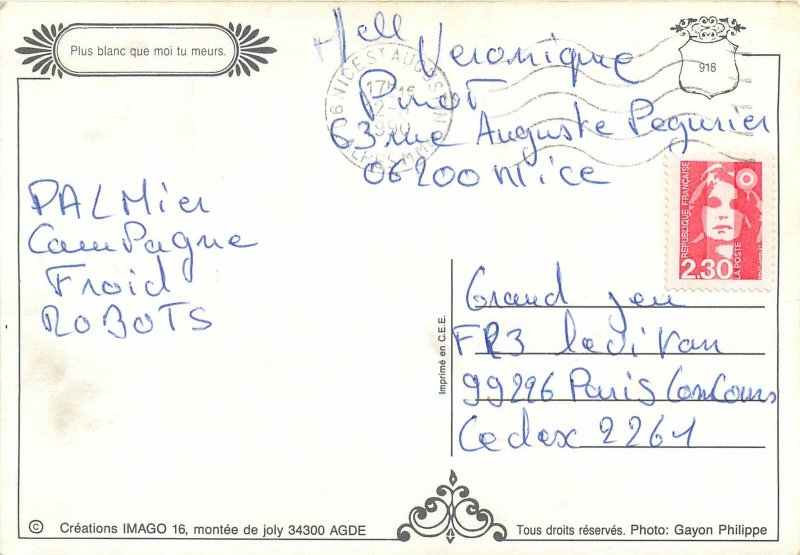 Plus blanc que moi tu meurs.
918
Mell Veronique
Pinot
63 rue Auguste Pegurier
06200 Nice
NICE ST AUGUSTIN
17H
1990
REPUBLIQUE FRANÇAISE
2.30
LA POSTE
PALMier
CamPagne
Froid
ROBOTS
Grand jeu
FR3 ledivan
99296 Paris ConCours
Cedex 2261
Imprimé en C.E.E.
© Créations IMAGO 16, montée de joly 34300 AGDE
Tous droits réservés. Photo: Gayon Philippe